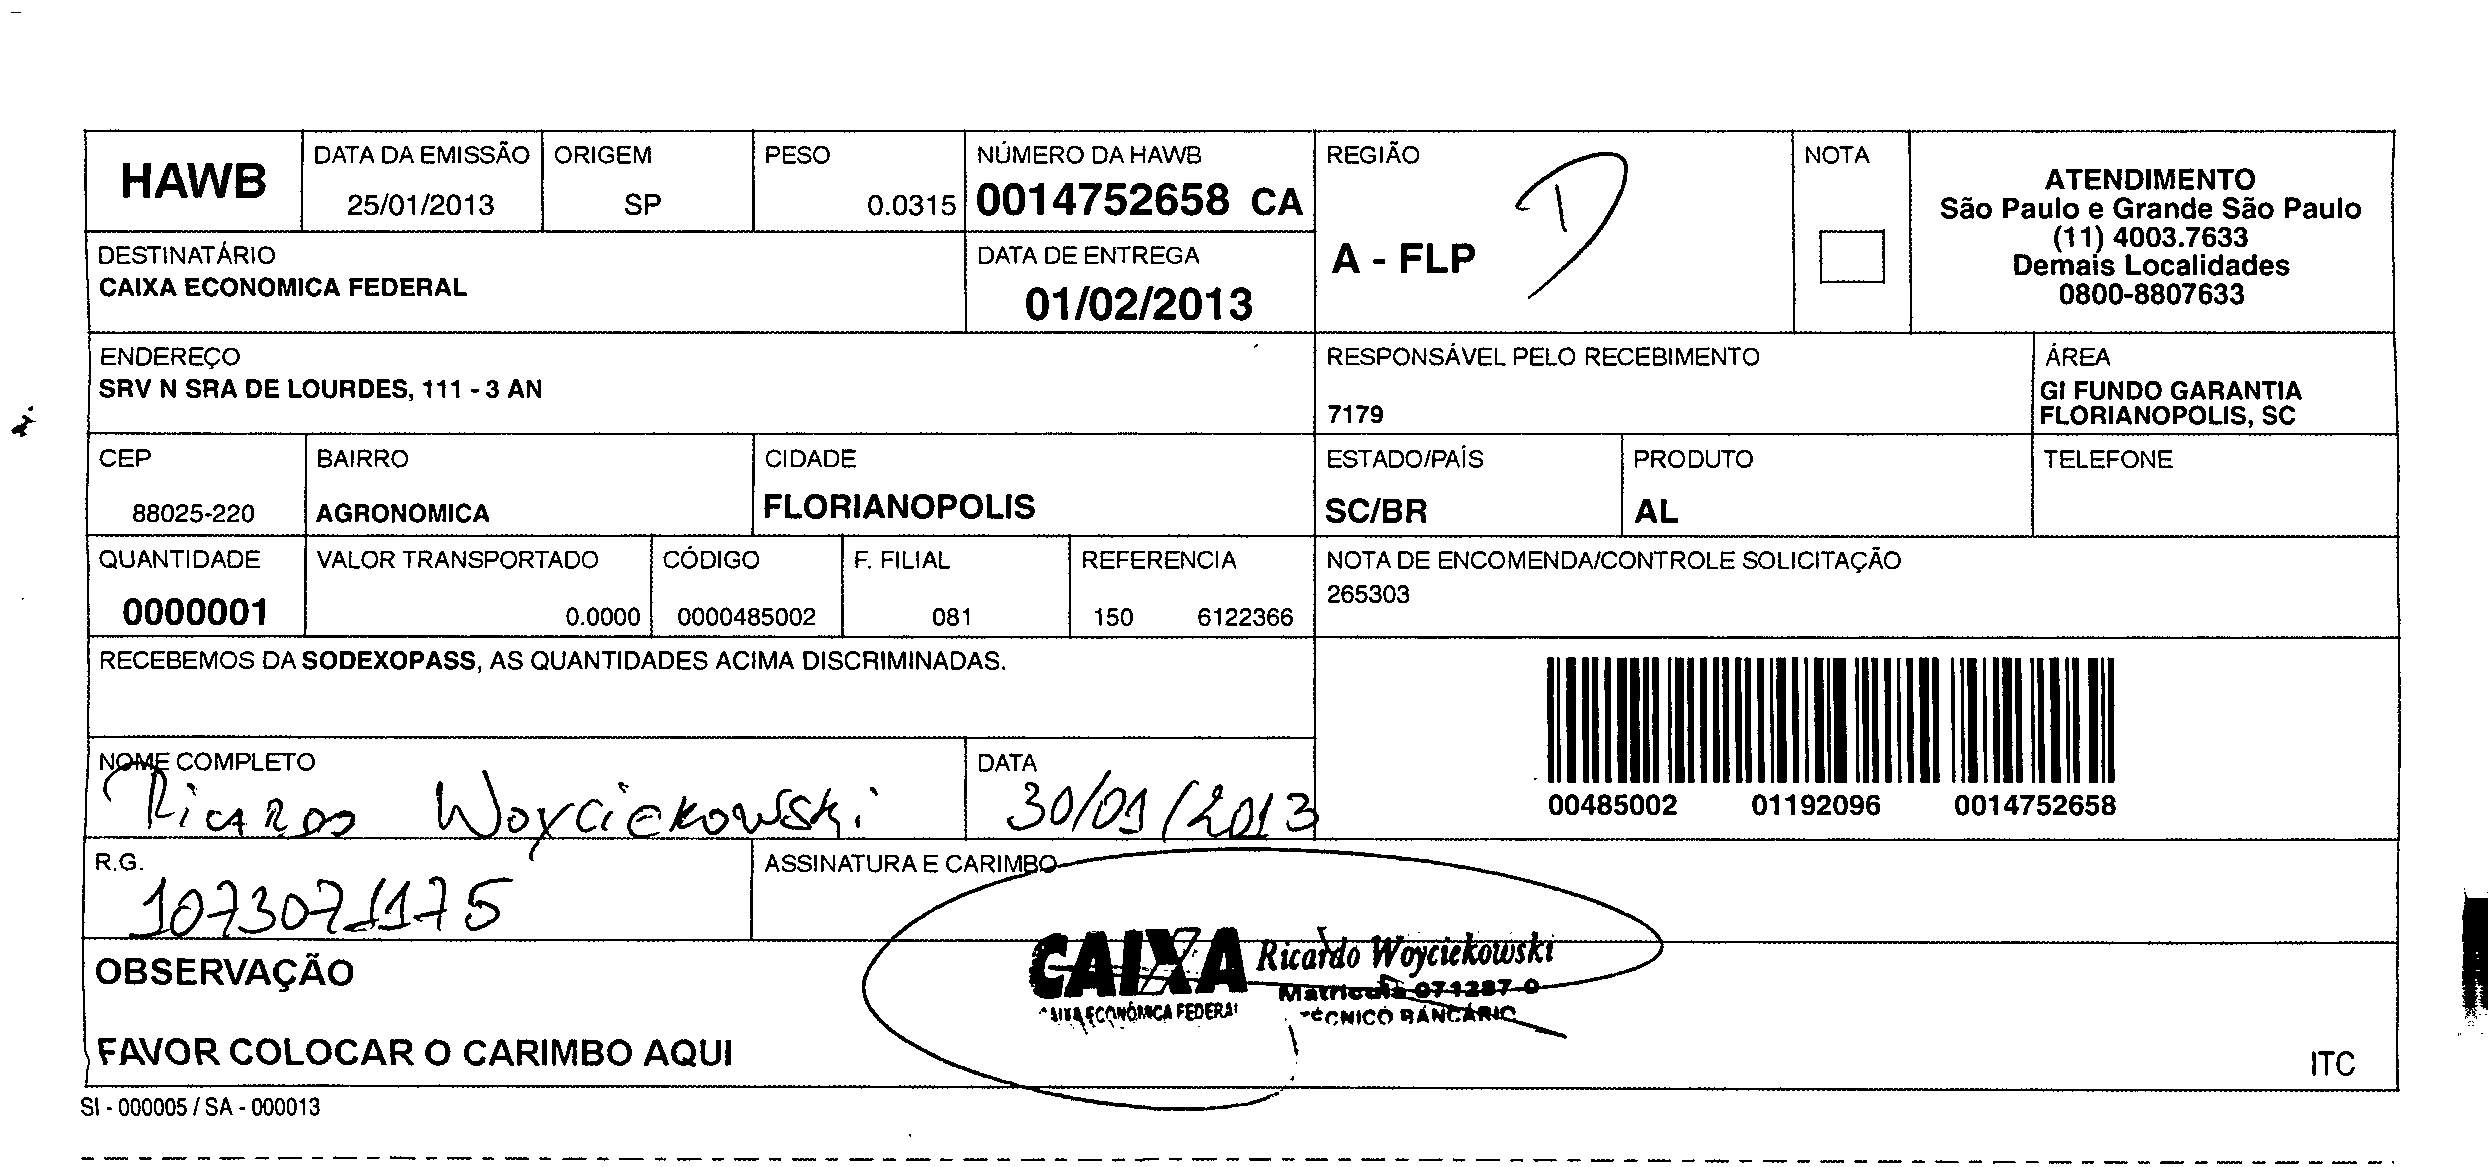 HAWB
DATA DA EMISSÃO
25/01/2013
ORIGEM
SP
PESO
0.0315
NÚMERO DA HAWB
0014752658 CA
REGIÃO
A - FLP
NOTA
ATENDIMENTO
São Paulo e Grande São Paulo
(11) 4003.7633
Demais Localidades
0800-8807633
DESTINATÁRIO
CAIXA ECONOMICA FEDERAL
DATA DE ENTREGA
01/02/2013
ENDEREÇO
SRV N SRA DE LOURDES, 111 - 3 AN
RESPONSÁVEL PELO RECEBIMENTO
7179
ÁREA
GI FUNDO GARANTIA
FLORIANOPOLIS, SC
CEP
88025-220
BAIRRO
AGRONOMICA
CIDADE
FLORIANOPOLIS
ESTADO/PAÍS
SC/BR
PRODUTO
AL
TELEFONE
QUANTIDADE
0000001
VALOR TRANSPORTADO
0.0000
CÓDIGO
0000485002
F. FILIAL
081
REFERENCIA
150 6122366
NOTA DE ENCOMENDA/CONTROLE SOLICITAÇÃO
265303
RECEBEMOS DA SODEXOPASS, AS QUANTIDADES ACIMA DISCRIMINADAS.
00485002 01192096 0014752658
NOME COMPLETO
Ricardo Woyciekowski
DATA
30/01/2013
R.G.
1073071175
ASSINATURA E CARIMBO
CAIXA
CAIXA ECONÔMICA FEDERAL
Ricardo Woyciekowski
Matrícula 071287-0
TÉCNICO BANCÁRIO
OBSERVAÇÃO
FAVOR COLOCAR O CARIMBO AQUI
ITC
SI - 000005 / SA - 000013